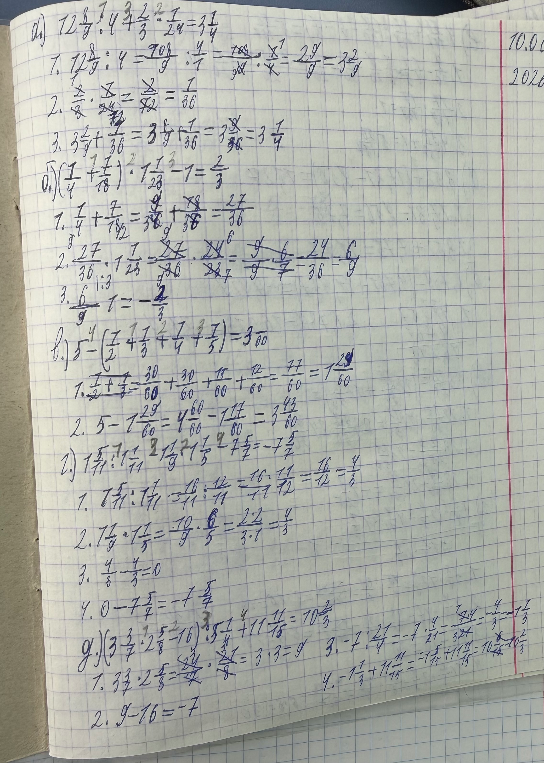 10.0
2026
а.) 12 8/9 : 4 + 2/3 : 1/24 = 3 1/4
1. 12 8/9 : 4 =
= 29/9 = 3 2/9
= 1/36
3. 3 2/9 + 1/36 = 3 8/9 + 1/36 = 3 9/36 = 3 1/4
б.) (1/4 + 7/18) · 1 1/23 - 1 = 2/3
1. 1/4 + 7/18 = 9/36 + 18/36 = 27/36
2. 27/36 · 1 1/23 =
= 24/36 = 6/9
3. 6/9 - 1 = - 2/3
в.) 5 - (1/2 + 1/3 + 1/4 + 1/5) = 3
1. 1/2 + 1/3 = 30/60 + 30/60 + 15/60 + 12/60 = 77/60 = 1 29/60
2. 5 - 1 29/60 = 4 60/60 - 1 17/60 = 3 43/60
г.) 1 5/11 : 1 1/11 - 1 1/9 · 1 1/5 - 7 5/7 = -7 5/7
1. 1 5/11 : 1 1/11 = 16/11 : 12/11 = 16/11 · 11/12 = 16/12 = 4/3
2. 1 1/9 · 1 1/5 = 10/9 · 6/5 = 2·2/3·1 = 4/3
3. 4/3 - 4/3 = 0
4. 0 - 7 5/7 = -7 5/7
д.) (3 3/7 · 2 5/8 - 16) : 5 1/4 + 11 11/15 = 10 2/3
1. 3 3/7 · 2 5/8 = 24/7 · 21/8 = 3 · 3 = 9
2. 9 - 16 = -7
3. -7 : 21/4 = -7 · 4/21 =
= - 4/3 = -1 1/3
4. -1 1/3 + 11 11/15 = -1 5/15 + 11 11/15 = 10 6/15 = 10 2/3